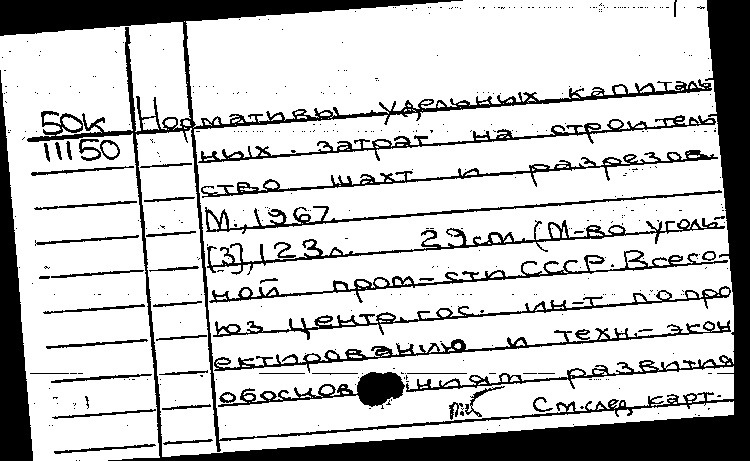 50к Нормативы удельных капиталь
11150 ных затрат на строитель
ство шахт и разрезов.
М., 1967.
[3], 123 л. 29 см. (М-во уголь-
ной пром-сти СССР. Всесо-
юз центр. гос. ин-т по про
ектированию и техн.-экон
обоснов ниям развития
См. след. карт.